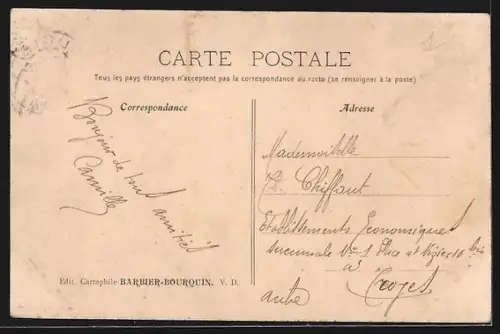 CARTE POSTALE
Tous les pays étrangers n'acceptent pas la correspondance au recto (se renseigner à la poste)
Correspondance
Bonjour de tout amitiés
Camille
Edit. Cartophile BARBIER-BOURQUIN. V. D.
Adresse
Mademoiselle
Chiffaut
Etablissements Economiques
succursale No 1 Place
à Troyes
aube